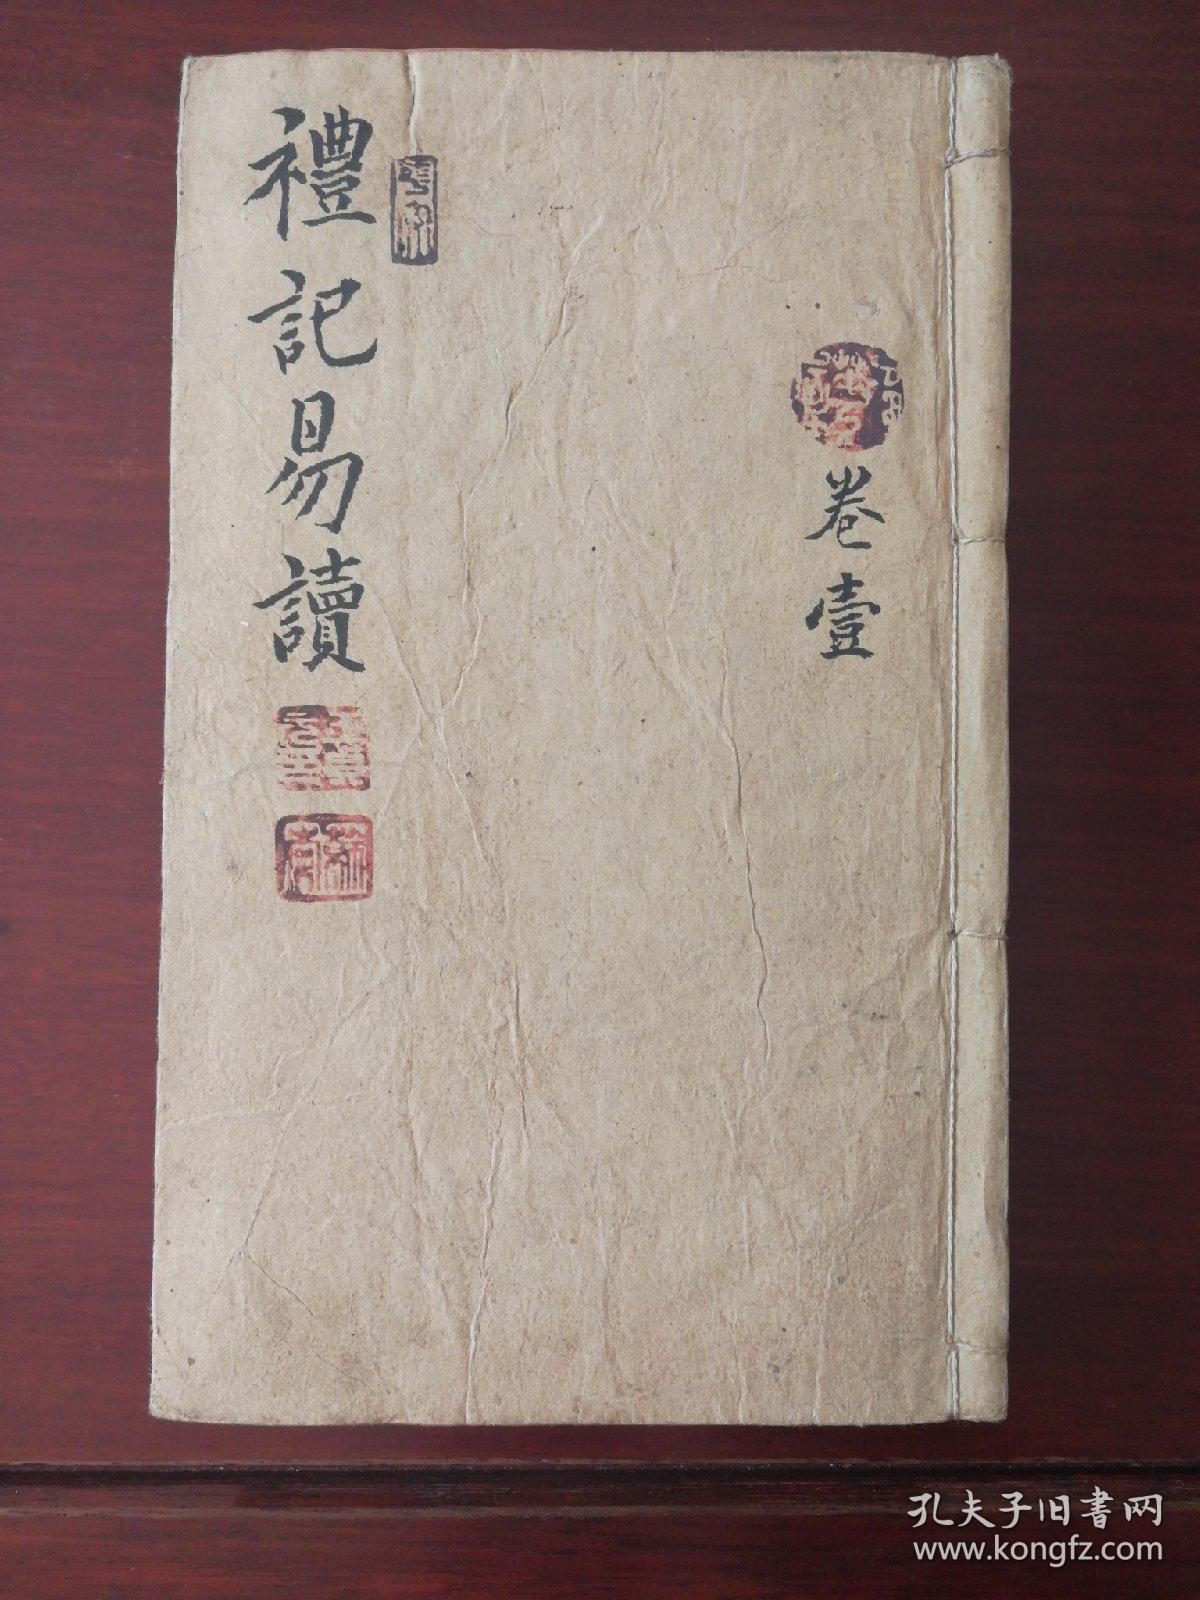 卷壹
禮記易讀
孔夫子旧书网
www.kongfz.com